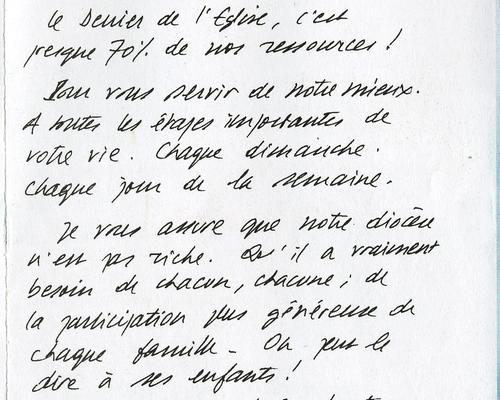 le Denier de l'Eglise, c'est
presque 70% de nos ressources !
Pour vous servir de notre mieux.
A toutes les étapes importantes de
votre vie. Chaque dimanche.
Chaque jour de la semaine.
Je vous assure que notre diocèse
n'est pas riche. Qu'il a vraiment
besoin de chacun, chacune ; de
la participation plus généreuse de
chaque famille - On peut le
dire à ses enfants !